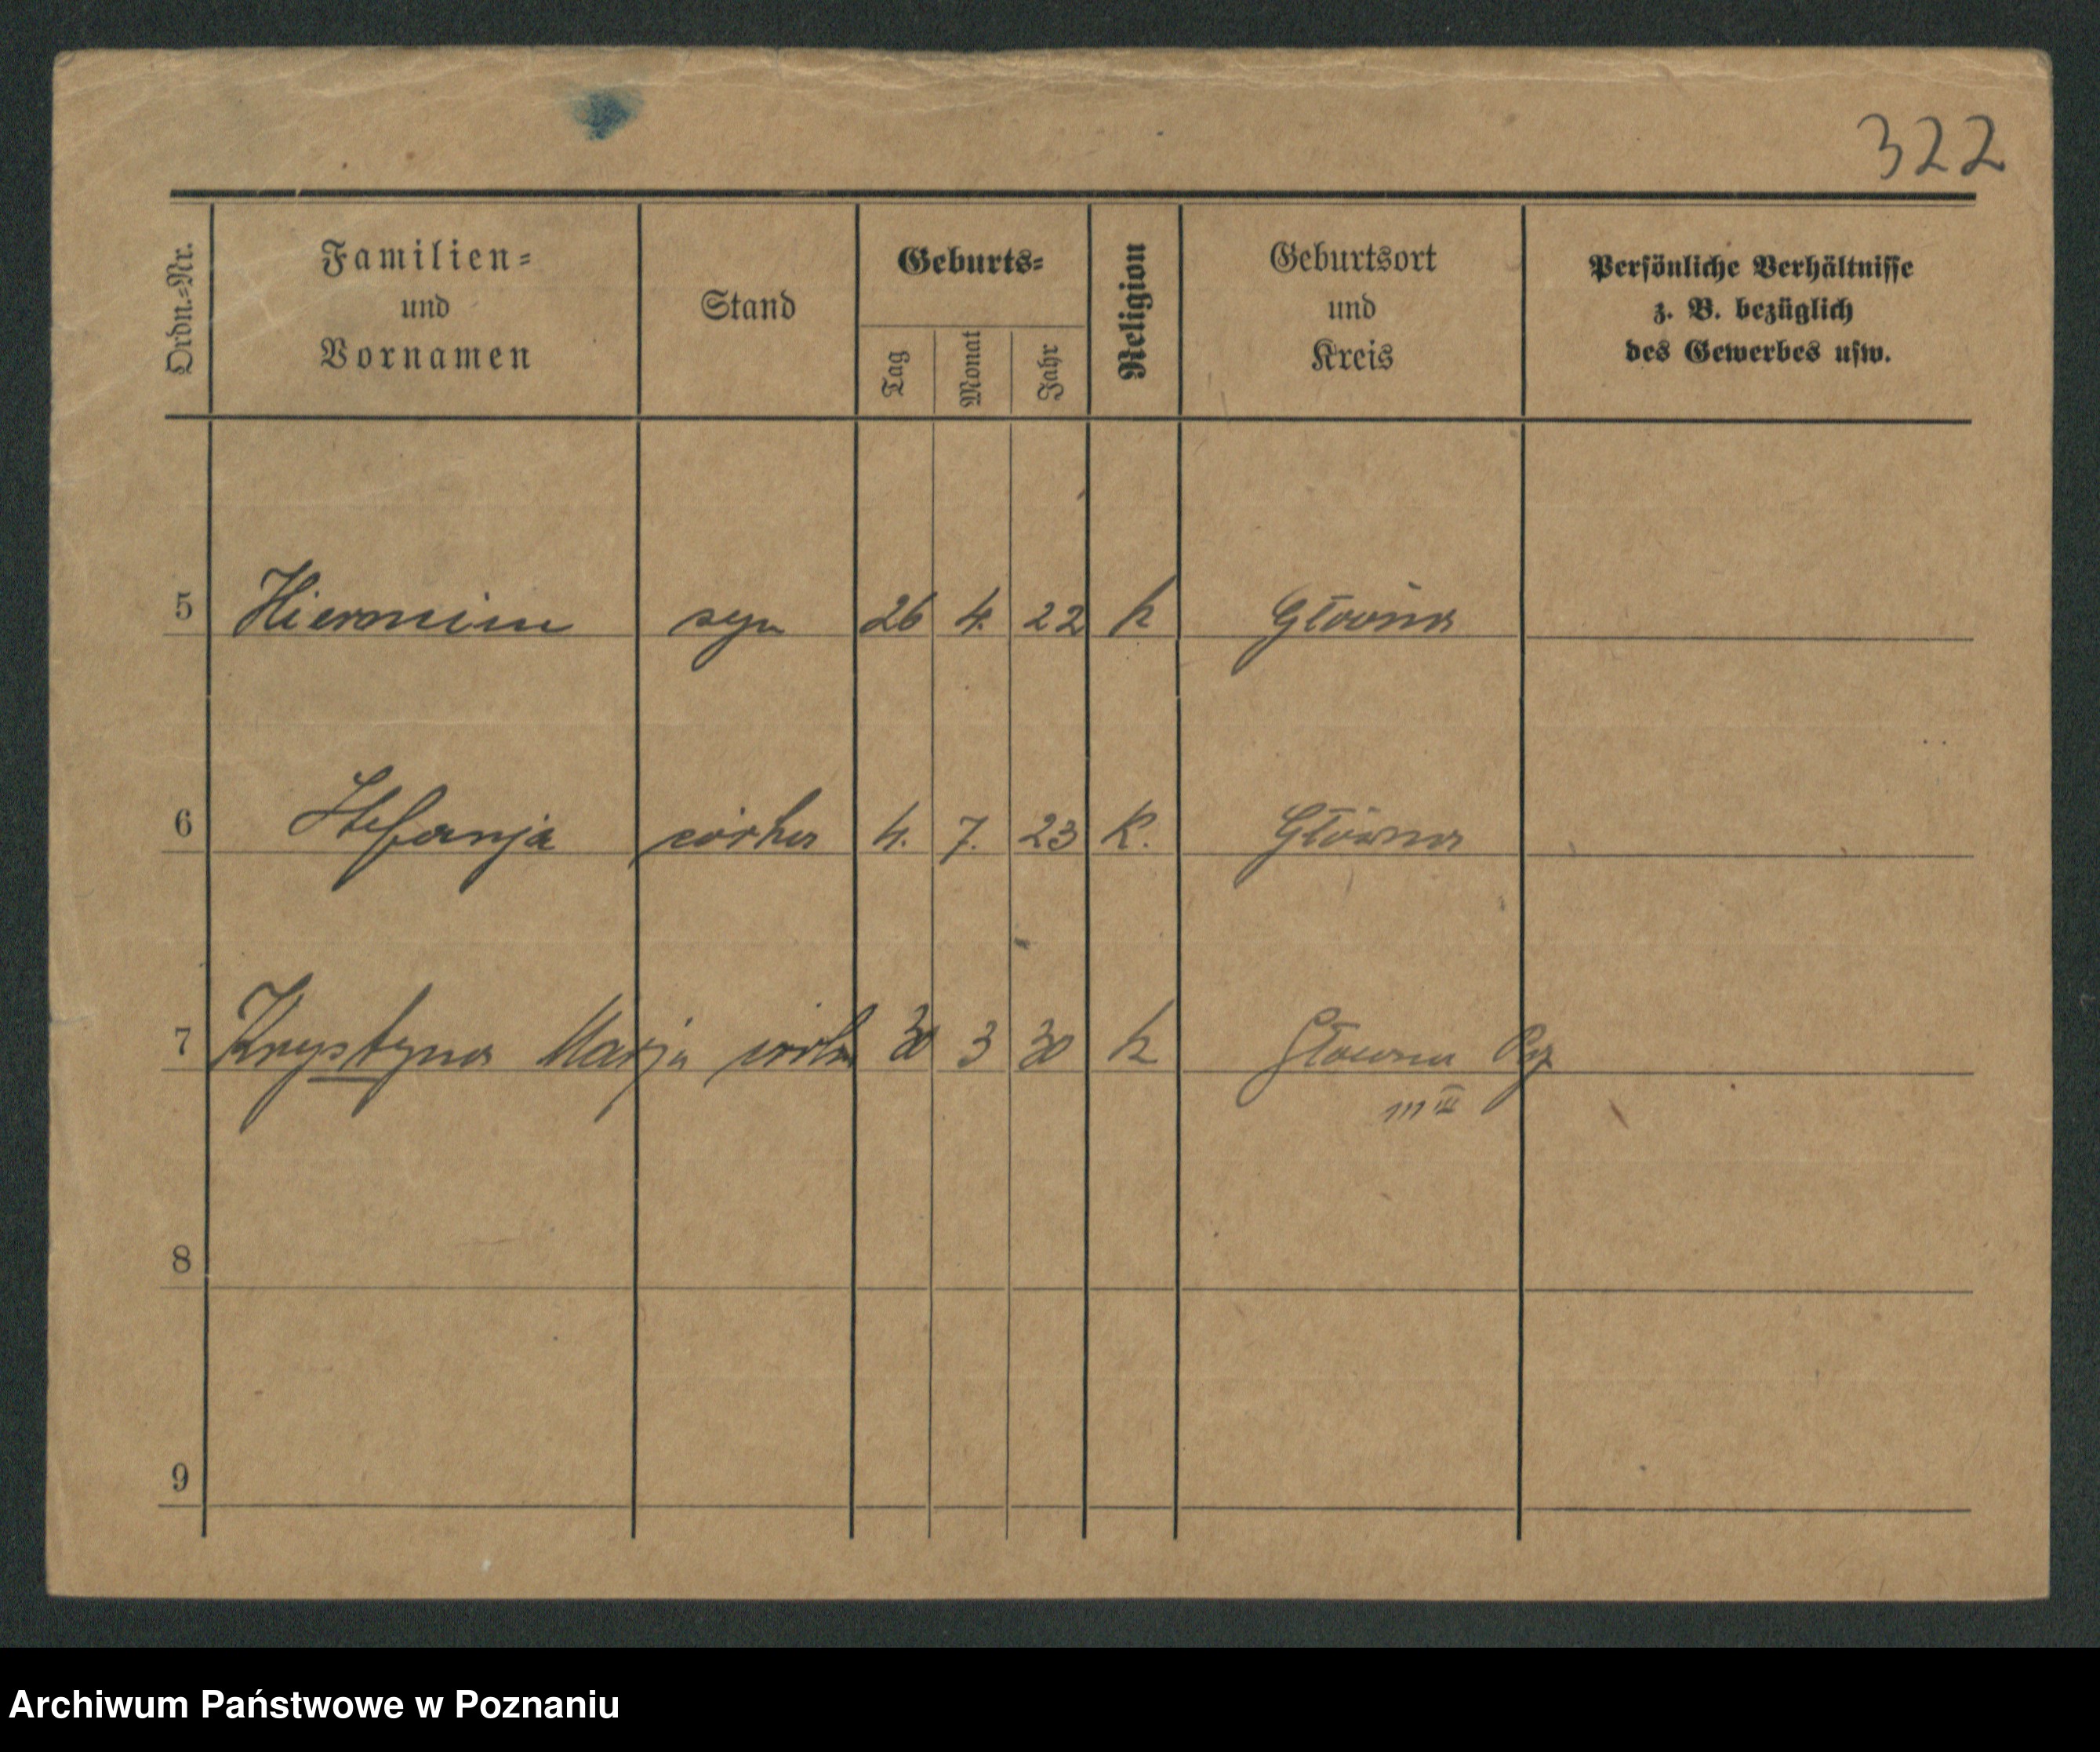 322
Ordn.-Nr. Familien- und Vornamen Stand Geburts- Tag Monat Jahr Religion Geburtsort und Kreis Persönliche Verhältnisse z. B. bezüglich des Gewerbes usw.
5 Hieronim syn 26 4. 22 k Główna
6 Stefanja córka 4. 7. 23 K. Główna
7 Krystyna Marja córka 30 3 30 k Główna
8
9
Archiwum Państwowe w Poznaniu